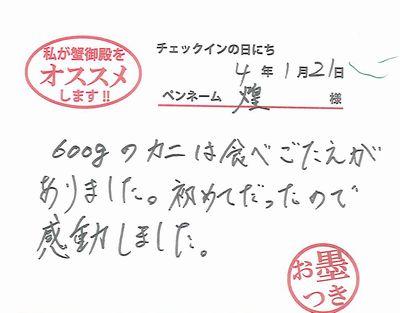 私が蟹御殿を
オススメ
します!!
チェックインの日にち
4 年 1 月 21 日
ペンネーム 煌 様
600gのカニは食べごたえが
ありました。初めてだったので
感動しました。
お墨
つき